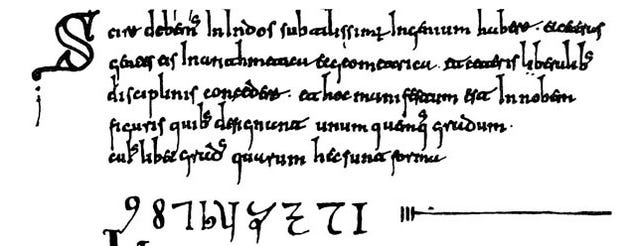 Scire debemꝰ In Indos subtilissimum Ingenium habere · et ceteras
gentes eis In arithmetica et geometrica · et ceteris liberalibꝰ
disciplinis concedere · et hoc manifestum est In nobem
figuris quibꝰ designant unum quenqꝰ gradum ·
cuiꝰlibet gradꝰ quarum hec sunt forma
9 8 7 6 5 4 3 2 1